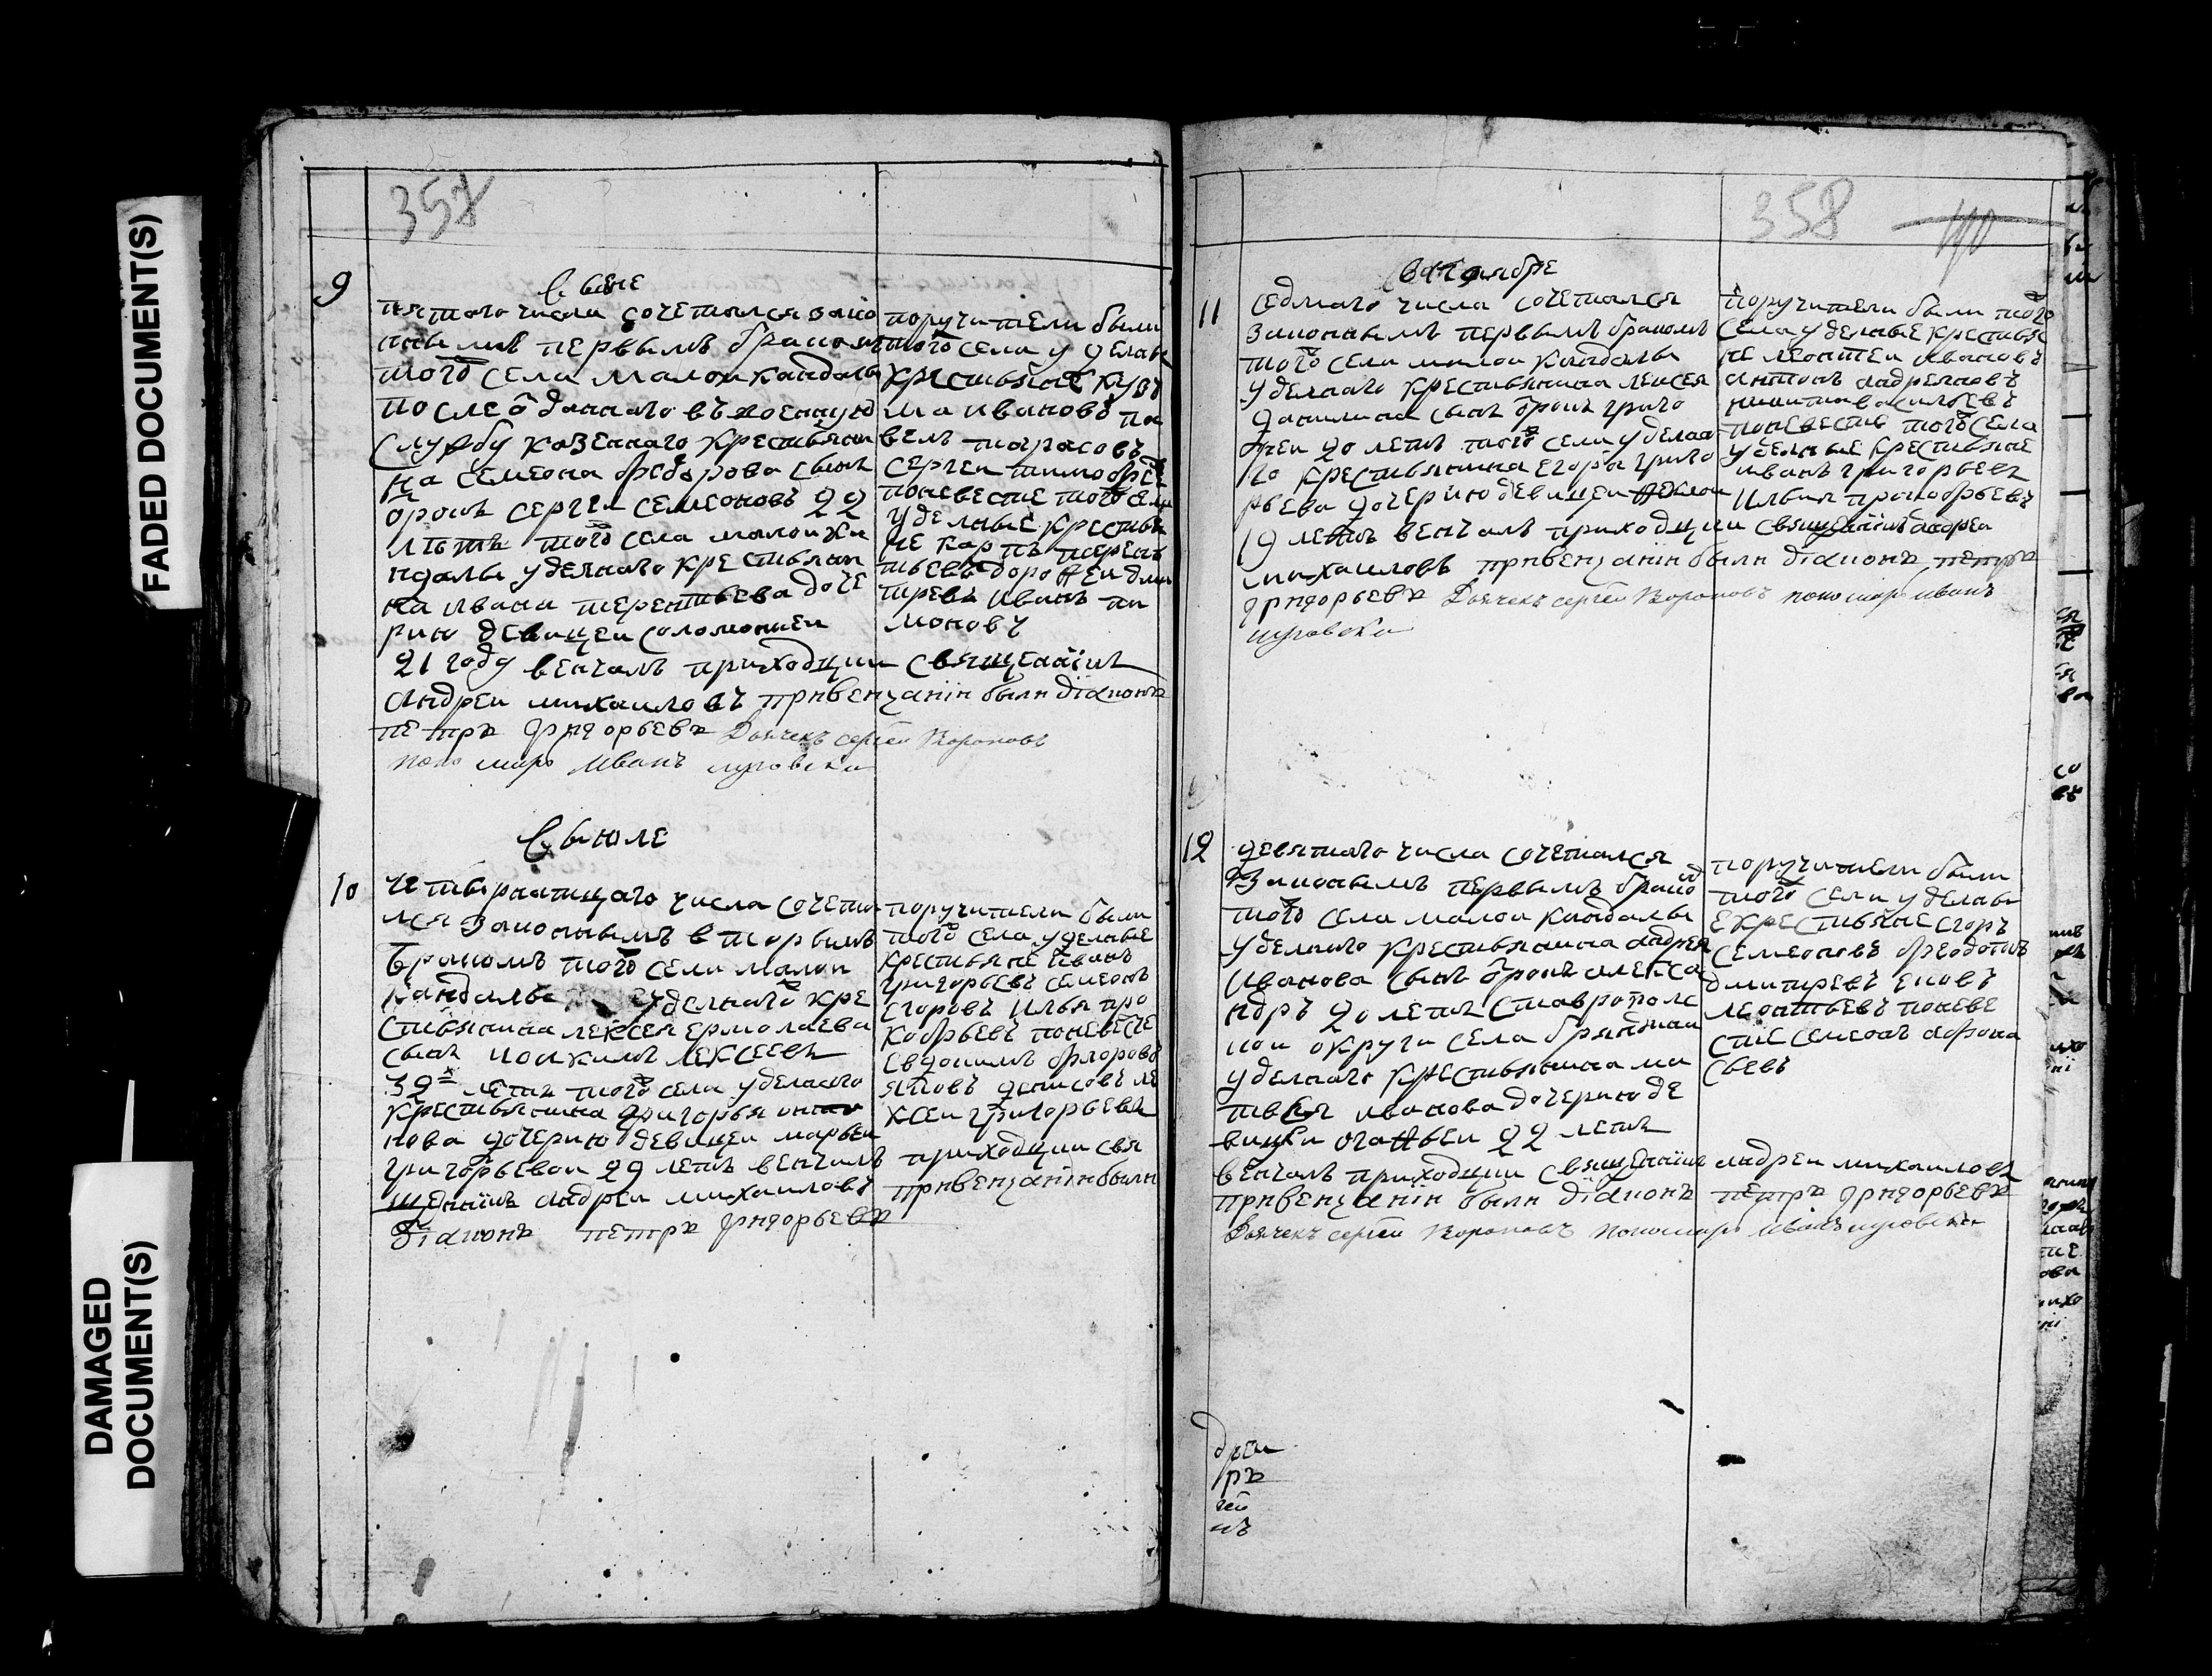 FADED DOCUMENT(S)
DAMAGED
DOCUMENT(S)
357
9
В июне
пятаго числа сочетался зако
ннымъ первымъ бракомъ
того села малои кандалы
после отданнаго въ военную
службу казеннаго крестьяни
на семеона федорова сынъ
отрокъ сергеи семеоновъ 22
летъ того села малои ка
ндалы уделнаго крестьяни
на ивана терентьева доче
рию девицеи соломониеи
21 году венчалъ приходции священникъ
андреи михаиловъ привенчании были диаконъ
петръ григорьевъ Дьячекъ сергеи Вороновъ
пономарь Иванъ луговски
поручители были
того села уделны
крестьяне кузь
ма ивановъ па
велъ тарасовъ
сергеи тимофее
поневесте того села
уделные крестья
не карпъ терень
тьевъ дорофеи дми
тревъ иванъ ти
моновъ
В июле
10
четвернатцаго числа сочета
лся законнымъ вторымъ
бракомъ того села малои
кандалы уделнаго кре
стьянина лексея ермолаева
сынъ иоакимъ лексеевъ
32 летъ того села уделнаго
крестьянина григорья
нова дочерию девицеи марьеи
григорьевои 29 летъ венчалъ приходции свя
щенникъ андреи михаиловъ привенчании были
диаконъ петръ григорьевъ
поручители были
того села уделные
крестьяне иванъ
григорьевъ семеонъ
егоровъ илья про
кофьевъ поневесте
евдокимъ федоровъ
яковъ денисовъ ле
ксеи григорьевъ
358
В октоябре
11
седмаго числа сочетался
законнымъ первымъ бракомъ
того села малои кандалы
уделнаго крестьянина лексея
данилина сынъ отрокъ григо
реи 20 летъ того села уделна
го крестьянина егора григо
рьева дочерию девицеи феклои
19 летъ венчалъ приходции священникъ андреи
михаиловъ привенчании были диаконъ петръ
григорьевъ Дьячекъ сергеи Вороновъ пономарь иванъ
луговски
поручители были того
села уделные крестья
не леонтеи ивановъ
антонъ андреяновъ
никита василъевъ
поневесте того села
уделные крестьяне
иванъ григорьевъ
илья прокофьевъ
12
девятаго числа сочетался
законнымъ первымъ брако
того села малои кандалы
уделнаго крестьянина андрея
иванова сынъ отрокъ алекса
ндръ 20 летъ ставрополс
кои округи села бряндина
уделнаго крестьянина ма
твея иванова дочерию де
вицеи огафьеи 22 летъ
венчалъ приходции священникъ андреи михаиловъ
привенчании были диаконъ петръ григорьевъ
Дьячекъ сергеи Вороновъ пономарь Иванъ луговски
поручители были
того села уделны
е крестьяне егоръ
семеоновъ феодотъ
дмитревъ
леонтьевъ поневе
сте семеонъ афона
сьевъ
дреи
ръ
геи
нъ